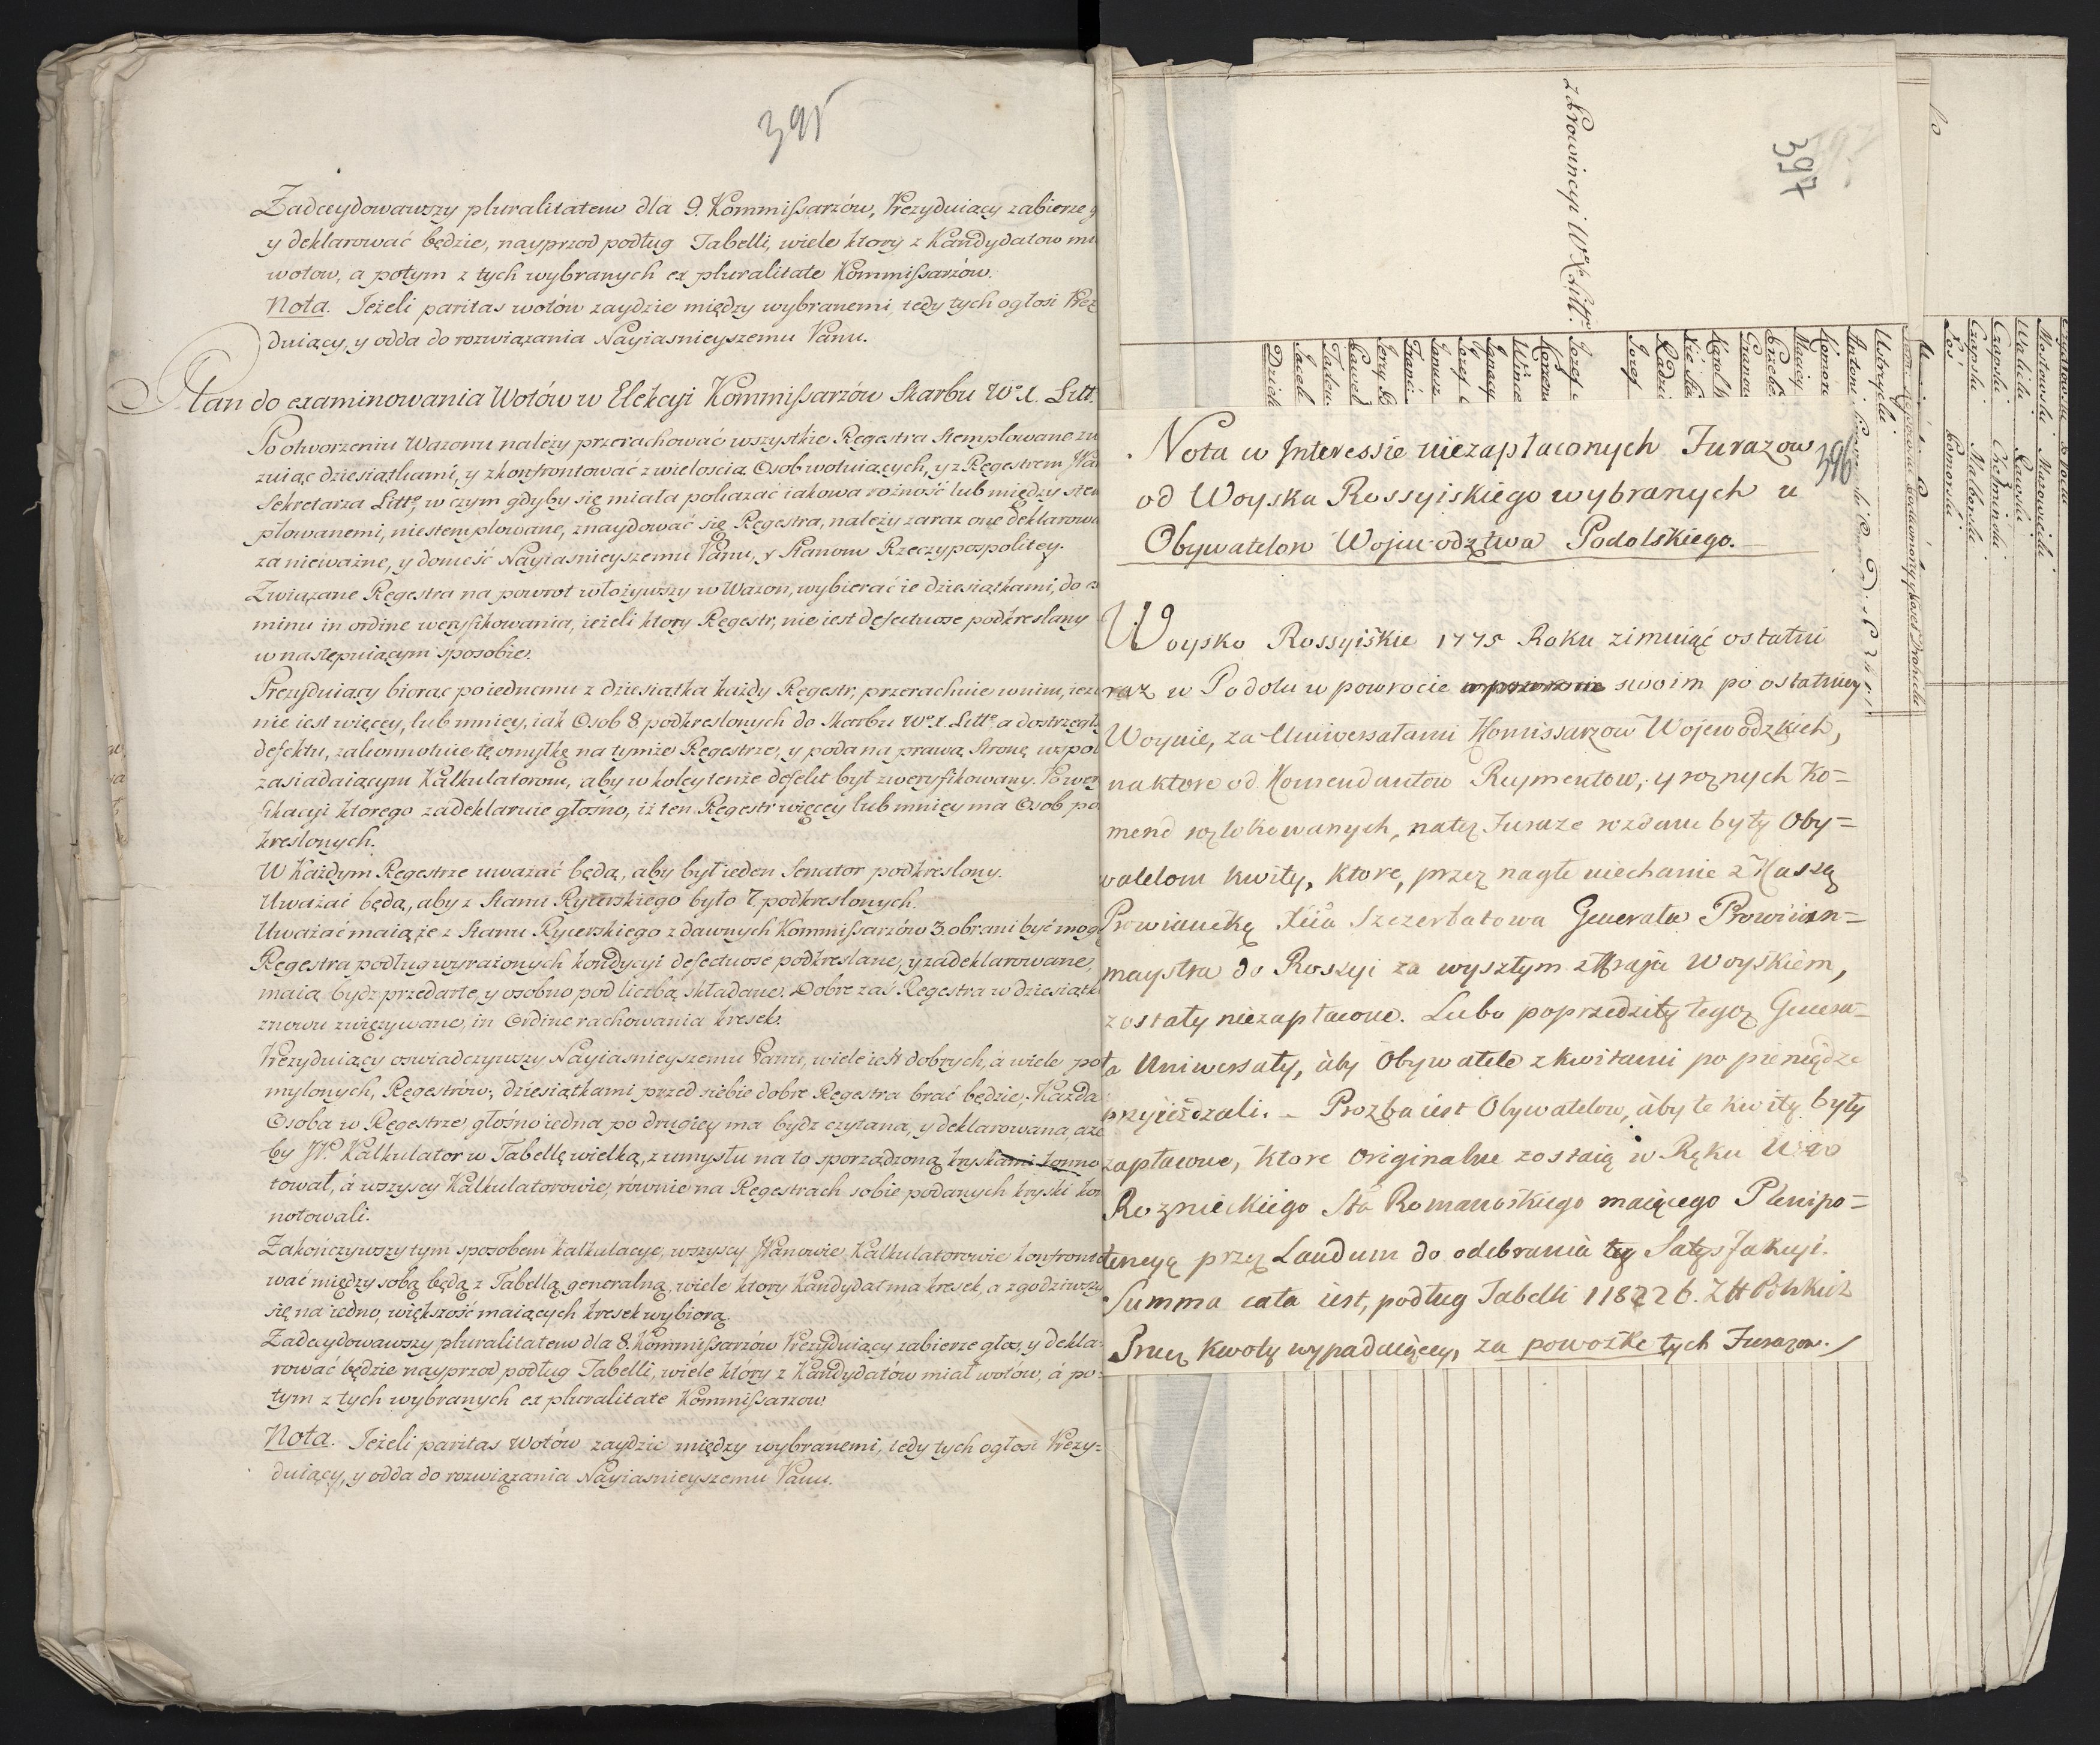 395
Zadecydowawszy pluralitatem dla 9. Kommissarzów, Prezyduiący zabierze
y deklarować będzie, nayprzod podług Tabelli, wiele ktory z Kandydatow
wotow, a potym z tych wybranych ex pluralitate Kommissarzów.
Nota. Jeżeli paritas wotów zaydzie między wybranemi, tedy tych ogłosi Prez
duiący, y odda do rozwiązania Nayiasnieyszemu Panu.
Plan do examinowania Wotów w Elekcyi Kommissarzów Skarbu Wo. X. Litt.
Po otworzeniu Wazonu należy przerachować wszystkie Regestra stemplowane
zuiąc dziesiątkami, y zkonfrontować z wielością Osob wotuiących, y z Regestrem
Sekretarza Litto, w czym gdyby się miała pokazać iakowa rożność lub między stem
plowanemi, niestemplowane, znaydować się Regestra, należy zaraz one deklarowa
za nieważne, y donieść Nayiasnieyszemu Panu, y Stanom Rzeczypospolitey.
Związane Regestra na powrot włożywszy w Wazon, wybierać ie dziesiątkami, do ex
minu in ordine weryfikowania, ieżeli ktory Regestr, nie iest defectuose podkreslany
w następuiącym sposobie.
Prezyduiący biorąc poiednemu z dziesiątka każdy Regestr, przerachuie w nim, ieże
nie iest więcey, lub mniey, iak Osob 8. podkreslonych do Skarbu Wo. X. Litto a dostrzegłs
defektu, zakonnotuie tę omyłkę na tymże Regestrze, y poda na prawą Stronę wspoł
zasiadaiącym Kalkulatorom, aby w koley tenże defekt był zweryfikowany. Po wery
fikacyi ktorego zadeklaruie głosno, iż ten Regestr więcey lub mniey ma Osob po
kreslonych.
W Każdym Regestrze uważać będą, aby był ieden Senator podkreslony.
Uważać będą, aby z Stanu Rycerskiego było 7. podkreslonych.
Uważać maią, że z Stanu Rycerskiego z dawnych Kommissarzów 3. obrani być mogą
Regestra podług wyrażonych kondycyi defectuose podkreslane, y zadeklarowane,
maią bydz przedarte, y osobno pod liczbą składane. Dobre zaś Regestra w dziesiątk
znowu związywane, in Ordine rachowania kresek.
Prezyduiący oswiadczywszy Nayiasnieyszemu Panu, wiele iest dobrych, á wiele po
mylonych, Regestrów, dziesiątkami przed siebie dobre Regestra brać będzie, Każda
Osoba w Regestrze, głośno iedna po drugiey ma bydz czytana, y deklarowana, aże
by JP. Kalkulator w Tabellę wielką, z umysłu na to sporządzoną kryskami konno
tował, á wszyscy Kalkulatorowie, równie na Regestrach sobie podanych kryski kon
notowali.
Zakończywszy tym sposobem kalkulacye, wszyscy JPanowie Kalkulatorowie konfronto
wać między sobą będą z Tabellą generalną, wiele ktory Kandydat ma kresek, a zgodziwszy
się na iedno, większość maiących kresek wybiorą.
Zadecydowawszy pluralitatem dla 8. Kommissarzów Prezyduiący zabierze głos, y dekla-
rować będzie nayprzod podług Tabelli, wiele który z Kandydatów miał wotów, á po-
tym z tych wybranych ex pluralitate Kommissarzow.
Nota. Jeżeli paritas Wotów zaydzie między wybranemi, tedy tych ogłosi Prezy=
duiący, y odda do rozwiązania Nayiasnieyszemu Panu.
397
z Prowincyi Wo. X. Litt:
396
Nota w Interessie niezapłaconych Furazow
od Woyska Rossyiskiego wybranych u
Obywatelow Wojewodztwa Podolskiego.
Woysko Rossyiskie 1775 Roku zimuiąc ostatni
raz w Podolu w powrocie swoim po ostatniey
Woynie, za Uniwersałami Komissarzow Wojewodzkich,
na ktore od Komendantow Reymentow, y roznych Ko=
mend rozlokowanych, natęz Furaze rozdane były Oby=
watelom kwity, ktore, przez nagłe uiechanie z Kassą
Prowiancką Xcia Szczerbatowa Generała Prowiian=
maystra do Rossyi za wyszłym z Kraju Woyskiem,
zostały niezapłacone. Lubo poprzedziły tegoz Genera=
ła Uniwersały, áby Obywatele z kwitami po pieniądze
przyieżdzali. - Prozba iest Obywatelow, áby te kwity były
zapłacone, ktore Originalne zostaią w Ręku
Roznieckiego Sta Romanowskiego maiącego Plenipo=
tencyą przez Laudum do odebrania tey Satysfakcyi.
Summa cała iest, podług Tabelli 118226. Złł Polskich
Procz kwoty wypadaiącey, za powozke tych Furazow.
Dział
Jacek
Tadeu
Paweł
Jerzy
Franci
Janusz
Jozef
Ignacy
Wince
Korzen
Jozef
Jozef
Radzi
Xże
Karol
Grano
Przebe
Maciey
Komoro
Antoni
Ustrzycki
Pos. Pomorski
Czapski Malborski
Czapski Chełminski
Walicki Rawski
Mostowski Mazowiecki